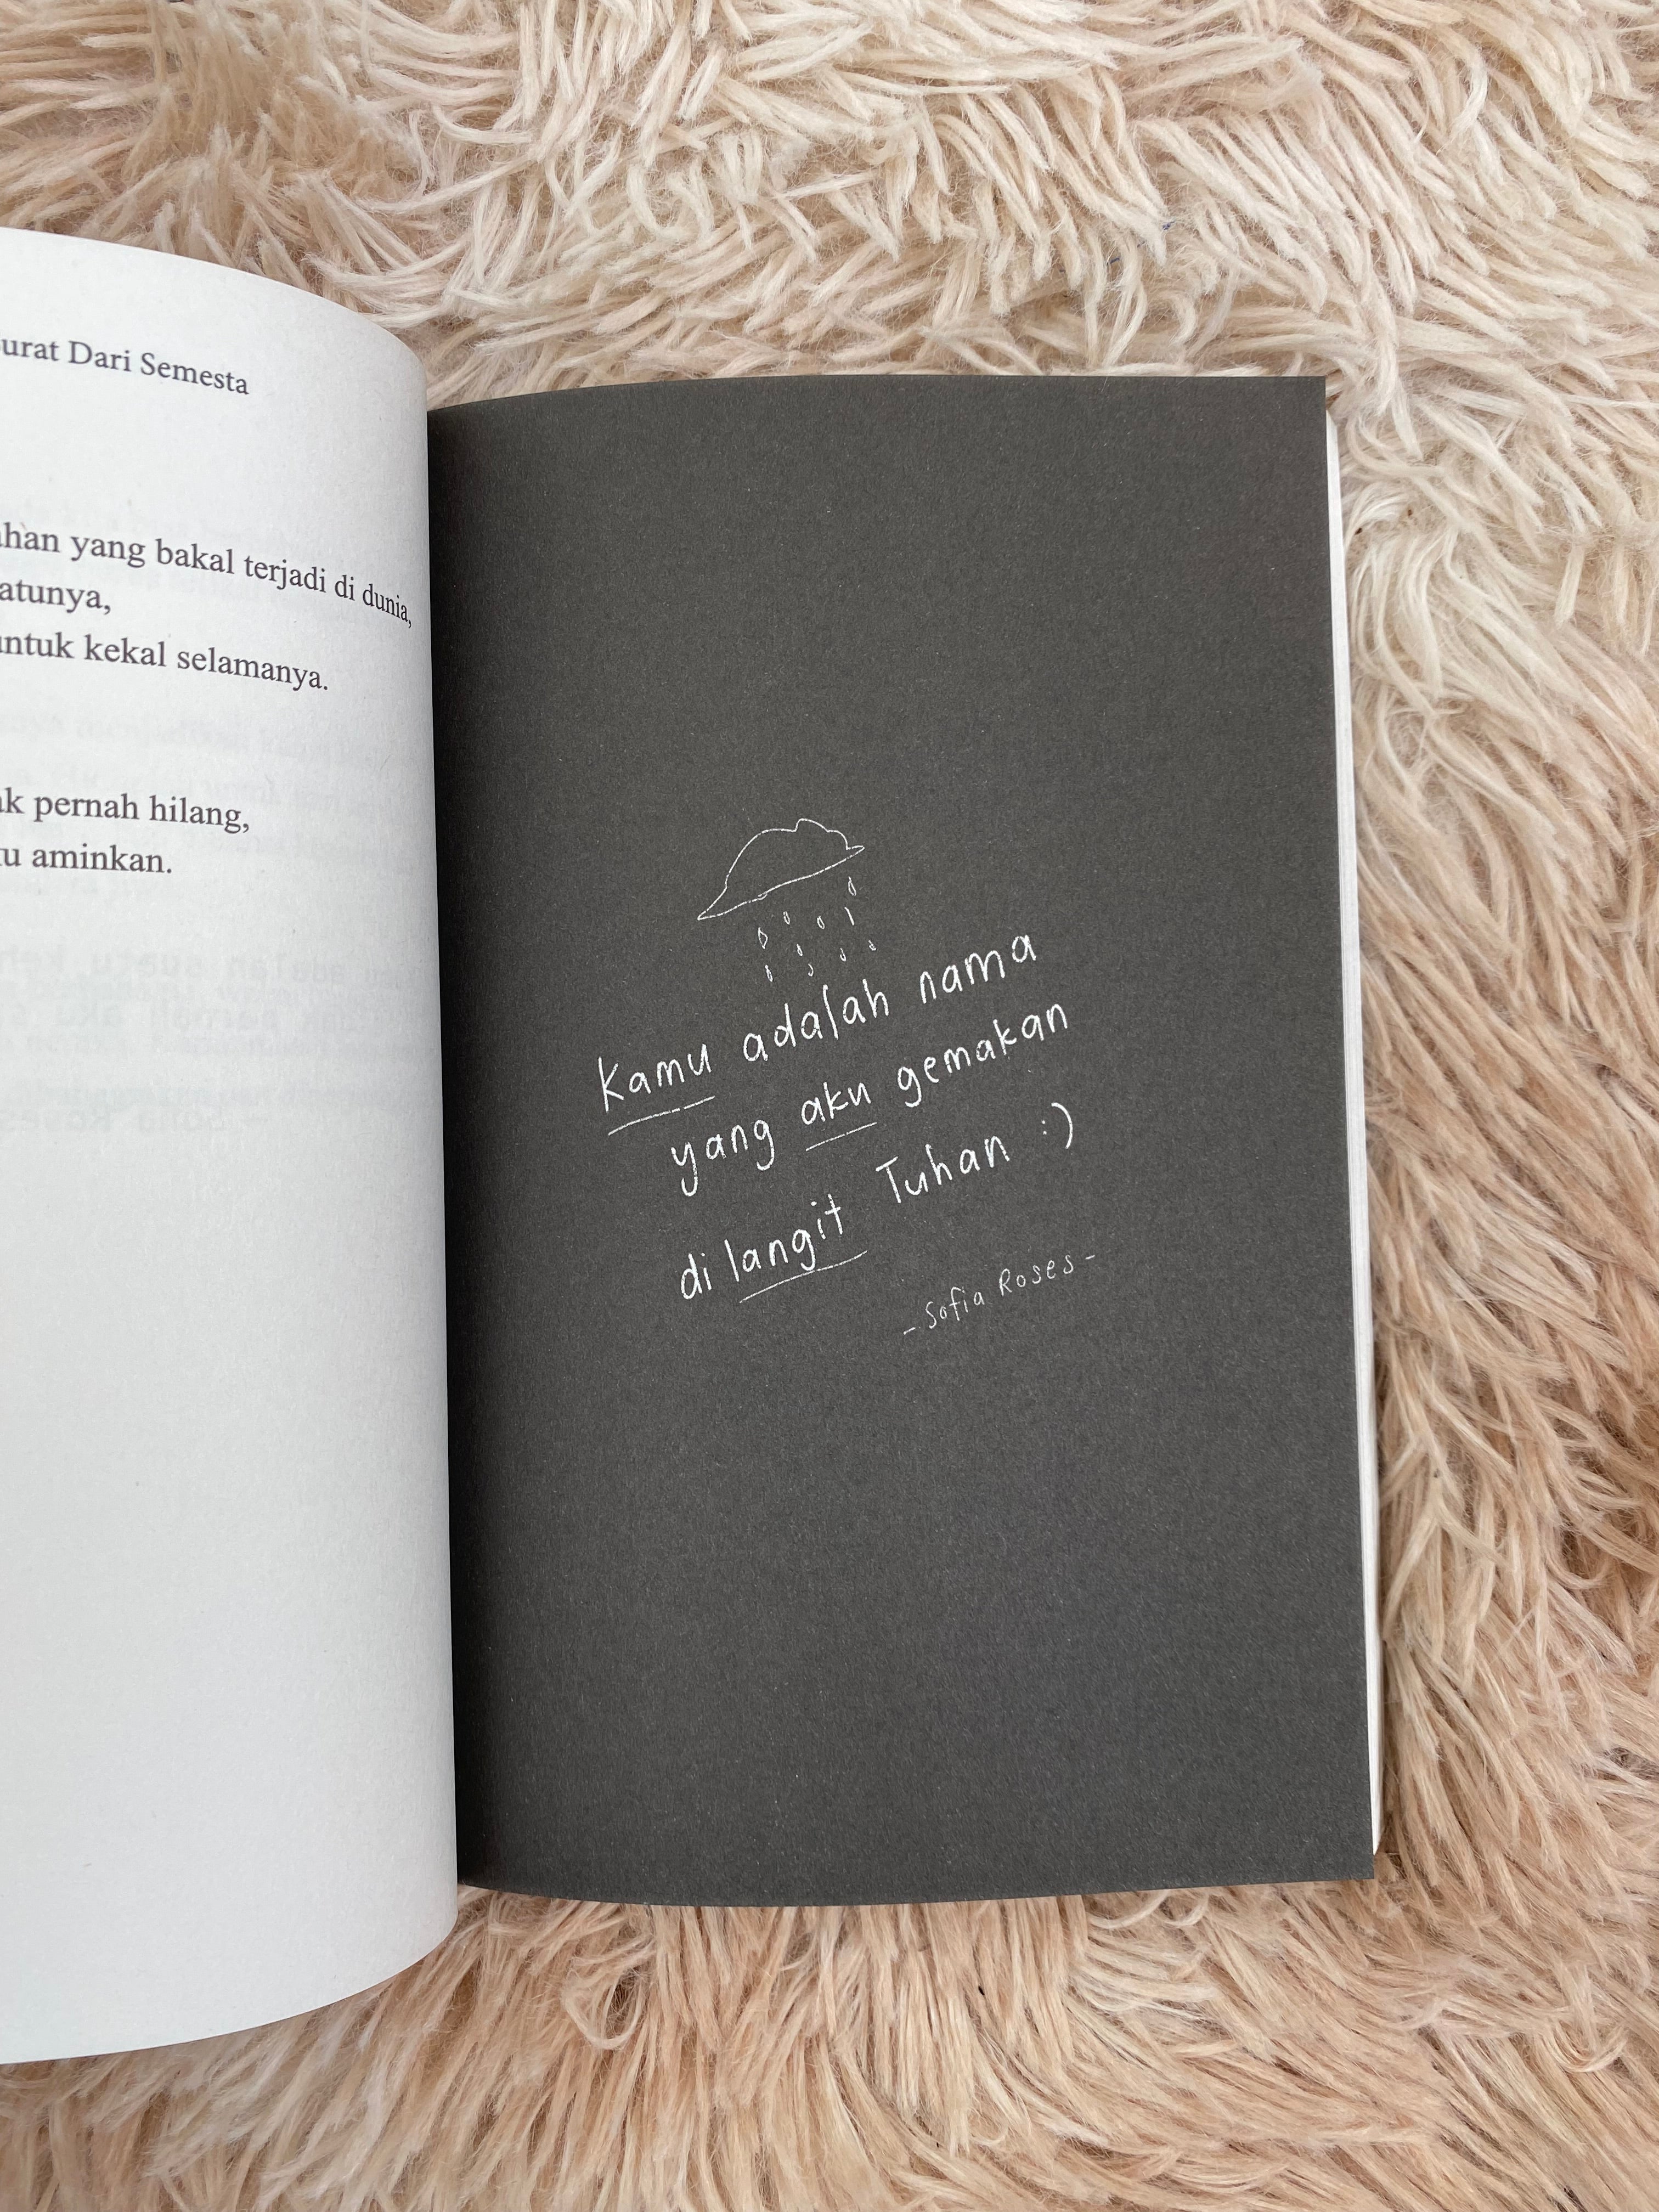 Dari Semesta
yang bakal terjadi di dunia,
kekal selamanya.
pernah hilang,
aminkan.
Kamu adalah nama
yang aku gemakan
di langit Tuhan :)
- Sofia Roses -